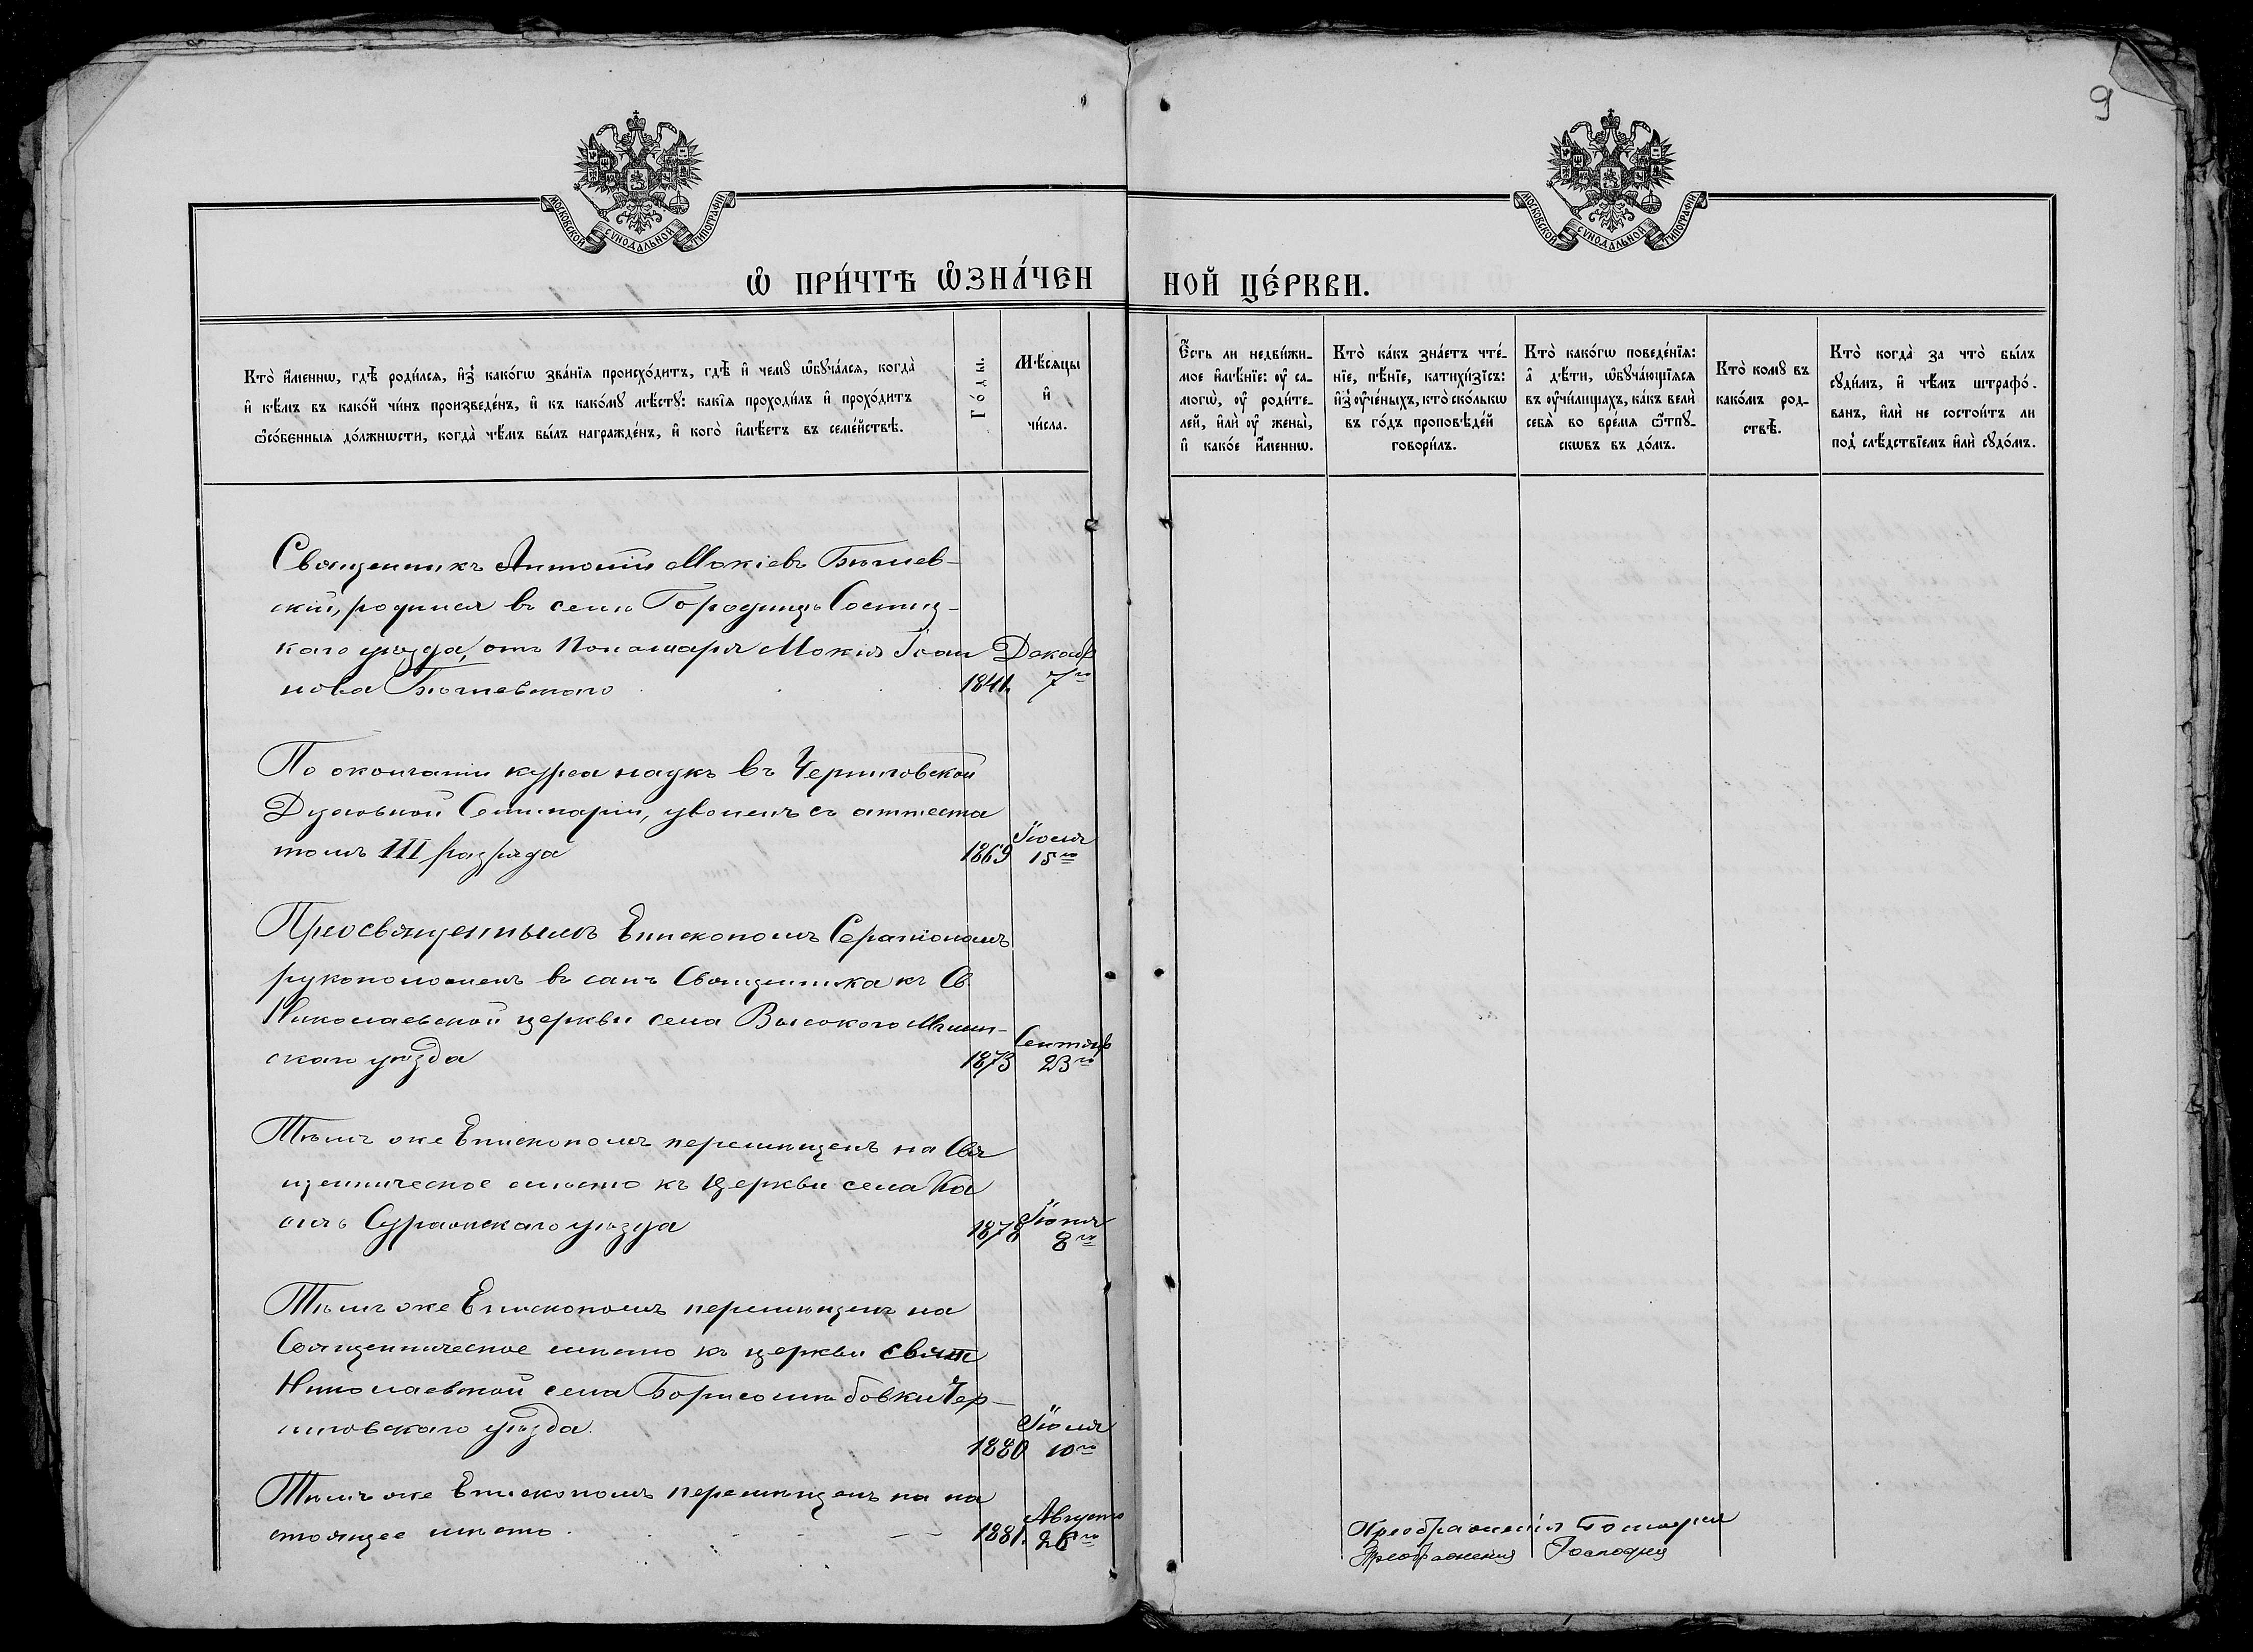 9
МОСКОВСКОЙ СУНОДАЛЬНОЙ ТИПОГРАФІИ.
МОСКОВСКОЙ СУНОДАЛЬНОЙ ТИПОГРАФІИ.
Ѽ ПРИ́ЧТѢ Ѽ.ЗНА́ЧЕН НОЙ ЦЕ́РКВИ.
Кто̀ и҆́меннѡ, гдѣ̀ роди́лся, и҆з̾ како́гѡ зва́нїѧ происхо́дитъ, гдѣ̀ и҆ чемꙋ̀ ѡ҆бꙋча́лся, когда̀
и҆ кѣ́мъ въ како́й чи́нъ произведе́нъ, и҆ къ како́мꙋ мѣ́стꙋ: какі̑ѧ проходи́лъ и҆ прохо́дитъ
ѻ҆со́бєнныѧ до́лжнѡсти, когда̀ чѣ́мъ бы́лъ награжде́нъ, и҆ кого̀ и҆мѣ́етъ въ семе́йствѣ.
Го́ды.
Мѣ́сяцы
и҆
чи́сла.
Є҆́сть ли недви́жи-
мое и҆мѣ́нїе: ᲂу҆ са-
могѡ̀, ᲂу҆ роди́те-
лей, и҆лѝ ᲂу҆ жены̀,
и҆ како́е и҆́меннѡ.
Кто̀ ка́къ зна́етъ чте́-
нїе, пѣ́нїе, катихи́зїсъ:
и҆з̾ ᲂу҆че́ныхъ, кто̀ ско́лькѡ
въ го́дъ проповѣ́дей
говори́лъ.
Кто̀ како́гѡ поведе́нїѧ:
а҆ дѣ́ти, ѡ҆бꙋча́ющїѧся
въ ᲂу҆чи́лищахъ, ка́къ велѝ
себѧ̀ во вре́мѧ ѿпꙋ-
скѡвъ въ до́мъ.
Кто̀ комꙋ̀ въ
како́мъ род-
ствѣ̀.
Кто̀ когда̀ за что̀ бы́лъ
сꙋди́мъ, и҆ чѣ́мъ штрафо́-
ванъ, и҆лѝ не состои́тъ ли
под̾ слѣ́дствїемъ и҆лѝ сꙋдо́мъ.
Священникъ Антоній Мокіевъ
скій, родился въ селѣ Городищѣ Сосниц-
каго уѣзда, отъ Пономаря Мокія Іоан Декабр
нова 1841. 7го
По окончаніи курса наукъ въ Черниговской
Духовной Семинаріи, уволенъ съ аттеста
томъ III разряда 1869 Іюля 15го
Преосвященнымъ Епископомъ Серапіономъ
рукоположенъ въ санъ Священника къ Св
Николаевской церкви села Высокого Мглин-
скаго уѣзда 1873 Сентябр 23го
Тѣмъ же Епископомъ перемѣщенъ на Свя
щенническое мѣсто къ Церкви села
Суражскаго уѣзда 1878 Іюня 8го
Тѣмъ же Епископомъ перемѣщенъ на
Священническое мѣсто къ церкви свят
Николаевской села Чер-
ниговскаго уѣзда. 1880 Іюля 10го
Тѣмъ же Епископомъ перемѣщенъ на на
стоящее мѣсто 1881. Августа 26го
Преображенія Господня
Преображения Господня